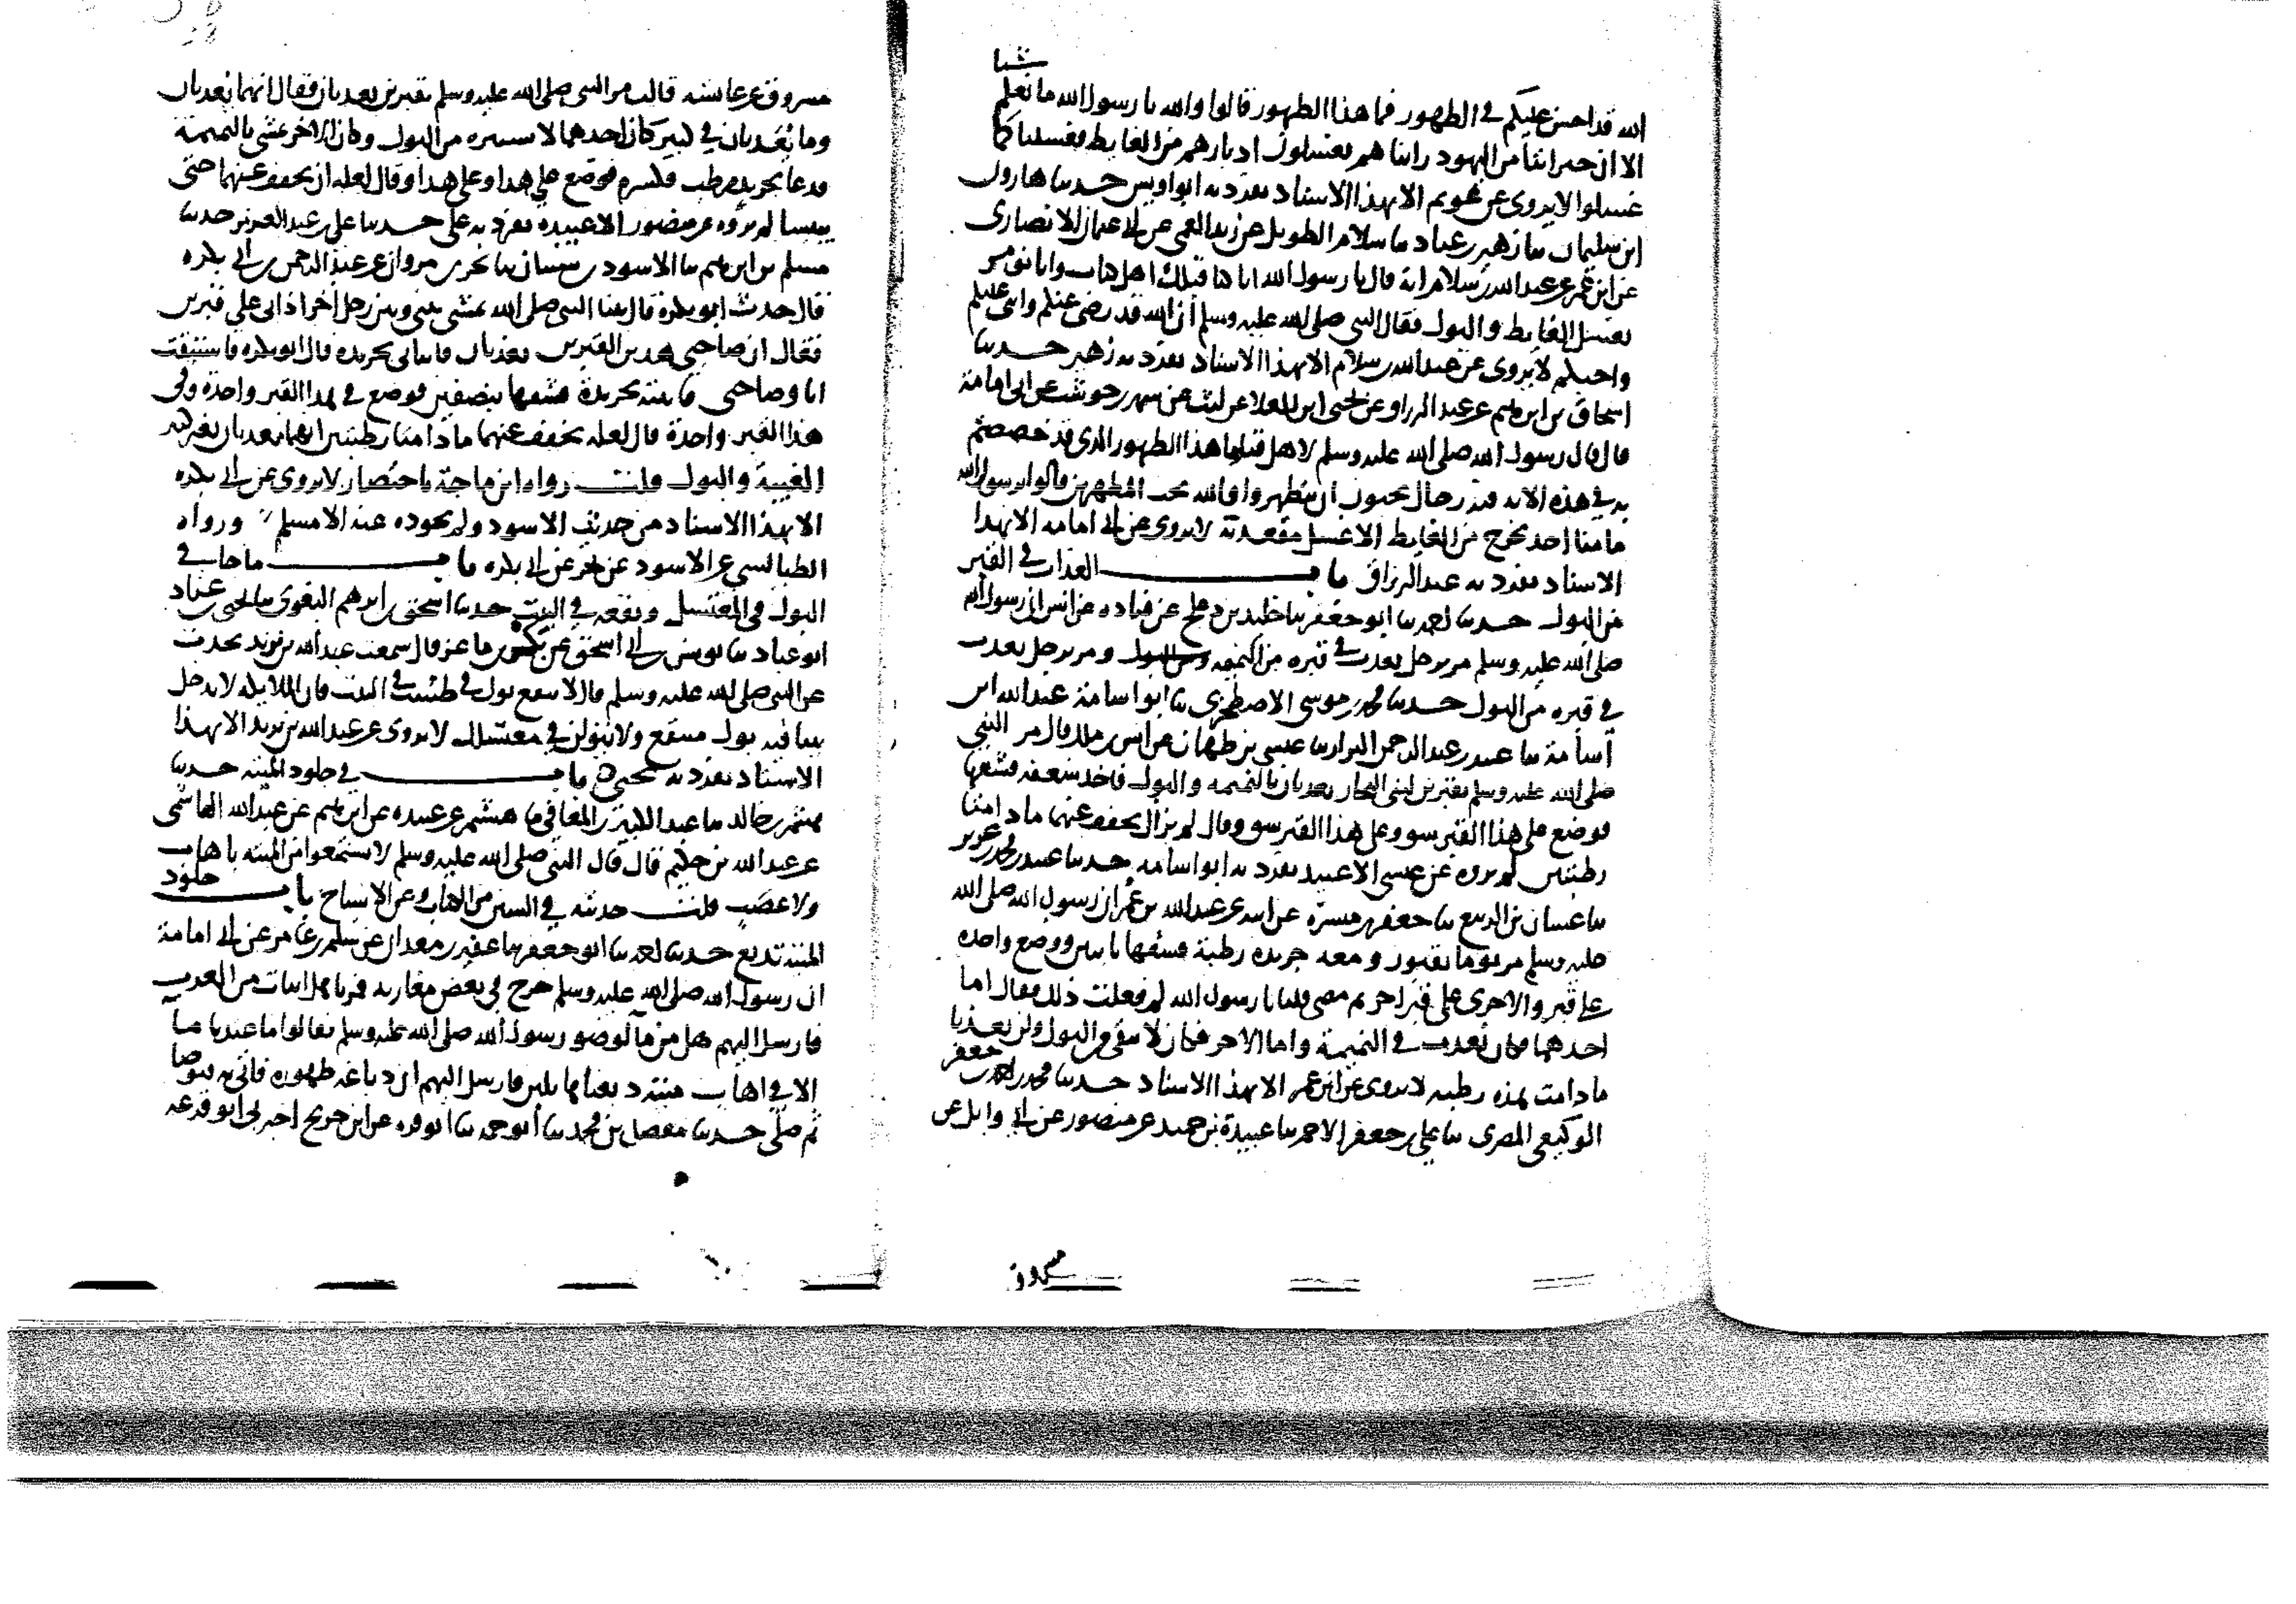 شيا
الله قد احسن عليكم في الطهور فما هذا الطهور قالوا والله يا رسول الله ما نعلم
الا ان جيراننا من اليهود راينا هم يغسلون ادبارهم من الغايط فغسلنا كما
غسلوا لا يروى عن عويم الا بهذا الاسناد تفرد به ابو اويس حدثنا هارون
ابن سليمان ثنا زهير بن عباد ثنا سلام الطويل عن زيد العمي عن ابي عثمان الانصاري
عن ابن عمر عن عبد الله بن سلام انه قال يا رسول الله انا كنا قبلك اهل كتاب وانا نومر
بغسل الغايط والبول فقال النبي صلى الله عليه وسلم ان الله قد رضي عنكم واثنى عليكم
واحبكم لا يروى عن عبد الله بن سلام الا بهذا الاسناد تفرد به زهير حدثنا
اسحاق بن ابراهيم عن عبد الرزاق عن يحيى ابن العلا عن ليث عن شهر بن حوشب عن ابي امامة
قال قال رسول الله صلى الله عليه وسلم لاهل قبا ما هذا الطهور الذي قد خصصتم
به في هذه الاية فيه رجال يحبون ان يتطهروا والله يحب المطهرين قالوا يا رسول الله
ما منا احد يخرج من الغايط الا غسل مقعدته لا يروى عن ابي امامه الا بهذا
الاسناد تفرد به عبد الرزاق باب العذاب في القبر
من البول حدثنا احمد ثنا ابو جعفر ثنا خليد بن دعلج عن قتاده عن انس ان رسول الله
صلى الله عليه وسلم مر برجل يعذب في قبره من النميمه ومر برجل يعذب
في قبره من البول حدثنا محمد بن موسى الاصطخري ثنا ابو اسامة عبد الله ابن
اسامة ثنا عبيد بن عبد الرحمن البزار ثنا عيسى بن طهمان عن انس بن ملك قال مر النبي
صلى الله عليه وسلم بقبرين لبني النجار يعذبان بالنميمه والبول فاخذ سعفه فشقها
فوضع على هذا القبر شق وعلى هذا القبر شق وقال لا يزال يخفف عنهما ما دامتا
رطبتين لم يروه عن عيسى الا عبيد تفرد به ابو اسامه حدثنا عبيد بن محمد
ثنا غسان بن الربيع ثنا جعفر بن ميسرة عن ابيه عن عبد الله بن عمر ان رسول الله صلى الله
عليه وسلم مر يوما بقبور و معه جريده رطبة فشقها باثنين ووضع واحده
على قبر والاخرى على قبر اخر ثم مضى قلنا يا رسول الله لم فعلت ذلك فقال اما
احدهما فكان يعذب في النميمة واما الاخر فكان لا يتقي من البول ولن يعذبا
ما دامت هذه رطبه لا يروى عن ابن عمر الا بهذا الاسناد حدثنا محمد بن احمد بن جعفر
الوكيعي المصري ثنا علي بن جعفر الاحمر ثنا عبيدة بن حميد عن منصور عن ابي وايل عن
مسروق
مسروق عن عايشه قالت مر النبي صلى الله عليه وسلم بقبرين يعذبان فقال انهما يعذبان
وما يعذبان في كبير كان احدهما لا يستنزه من البول وكان الاخر يمشي بالنميمة
فدعا بجريد رطب فكسره فوضع على هذا وعلى هذا وقال لعله ان يخفف عنهما حتى
ييبسا لم يروه عن منصور الا عبيده تفرد به علي حدثنا علي بن عبد العزيز حدثنا
مسلم بن ابراهيم ثنا الاسود بن شيبان ثنا بحر بن مروان عن عبد الرحمن بن ابي بكره
قال حدث ابو بكره قال بينا النبي صلى الله يمشي بيني وبين رجل اخر اذ اتى على قبرين
فقال ان صاحبي هذين القبرين يعذبان فاتياني بجريده قال ابو بكره فاستبقت
انا وصاحبي فاتيته بجريدة فشقها بنصفين فوضع في هذا القبر واحدة وفي
هذا القبر واحدة قال لعله يخفف عنهما ما دامتا رطبتين انهما يعذبان بغير كبير
الغيبة والبول قلت رواه ابن ماجة باختصار لا يروى عن ابي بكره
الا بهذا الاسناد من حديث الاسود ولم يجوده عنه الا مسلم ورواه
الطيالسي عن الاسود عن بحر عن ابي بكره باب ما جا في
البول في المغتسل ونقعه في البيت حدثنا اسحق بن ابراهيم البغوي ثنا يحيى بن عباد
ابو عباد ثنا يونس بن ابي اسحق عن بكير بن ماعز قال سمعت عبد الله بن يزيد يحدث
عن النبي صلى الله عليه وسلم قال لا ينقع بول في طست في البيت فان الملايكه لا تدخل
بيتا فيه بول منتقع ولا تبولن في مغتسلك لا يروى عن عبد الله بن يزيد الا بهذا
الاسناد تفرد به يحيى باب في جلود الميته حدثنا
خالد ثنا عبد الكبير بن المعافى ثنا هشيم عن عبيده عن ابراهيم عن عبد الله الهاشمي
عن عبد الله بن حكيم قال قال النبي صلى الله عليه وسلم لا تستمتعوا من الميته باهاب
ولا عصب قلت حديثه في السنن من الاهاب وعن الاشياخ باب جلود
الميتة تدبغ حدثنا احمد ثنا ابو جعفر ثنا عفير بن معدان عن سليم بن عامر عن ابي امامة
ان رسول الله صلى الله عليه وسلم خرج في بعض مغازيه فمر باهل ابيات من العرب
فارسل اليهم هل من ما لوضو رسول الله صلى الله عليه وسلم فقالوا ما عندنا ما
الا في اهاب ميتة دبغناها بلبن فارسل اليهم ان دباغه طهوره فاتي به فتوضا
ثم صلى حدثنا مفضل بن محمد ثنا ابو حمه ثنا ابو قره عن ابن جريج اخبرني ابو قزعه